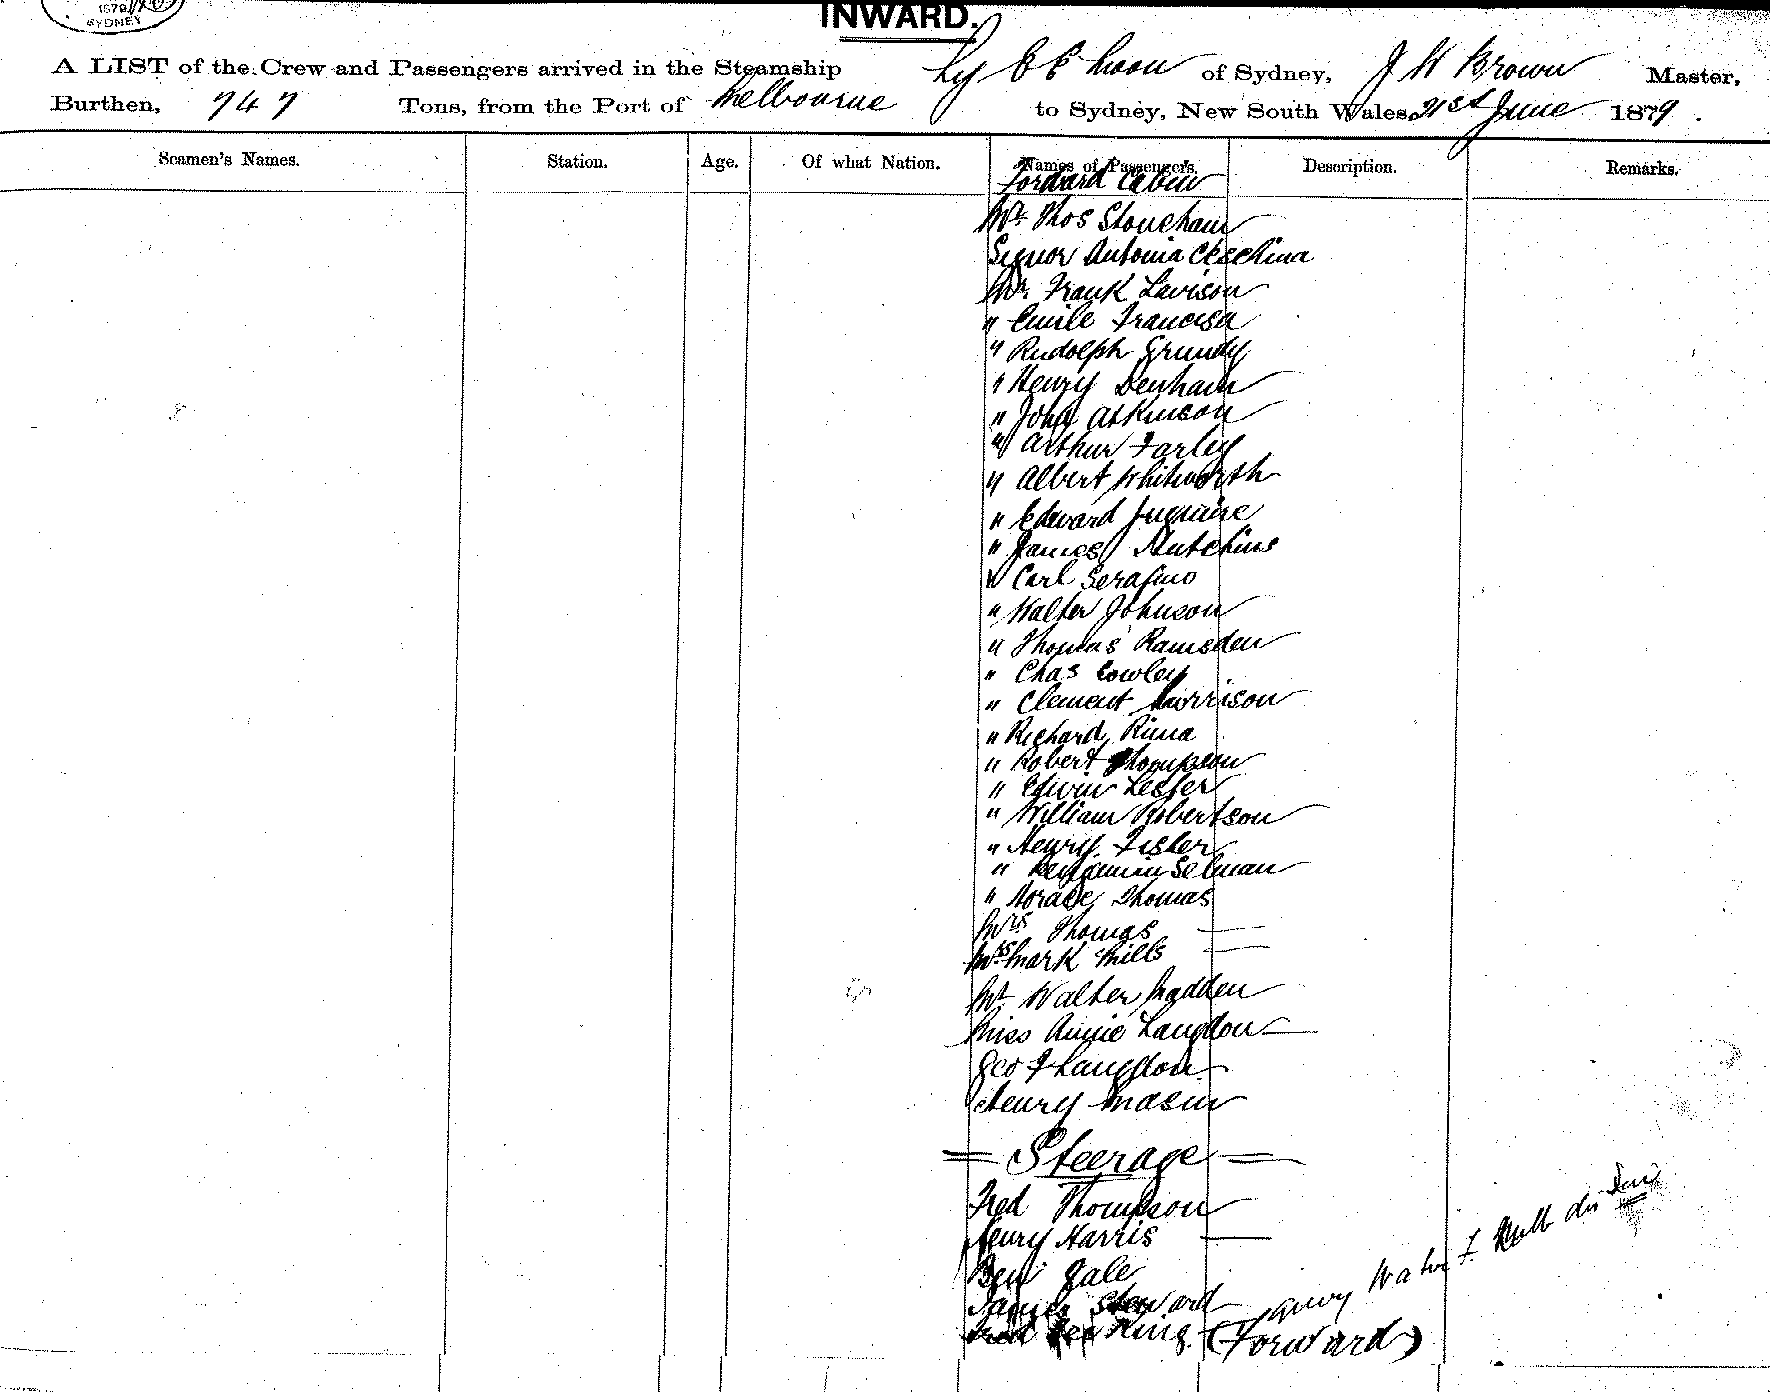 1879
SYDNEY
INWARD.
A LIST of the Crew and Passengers arrived in the Steamship Ly EE Moon of Sydney, J W Brown Master,
Burthen, 747 Tons, from the Port of Melbourne to Sydney, New South Wales, 21st June 1879.
Seamen's Names. Station. Age. Of what Nation. Names of Passengers. Description. Remarks.
Forward Cabin
Mr. Thos Stoneham
Signor Antonia Ceschina
Mr. Frank Lavison
" Emile
" Rudolph Grundy
" Henry Denham
" John Atkinson
" Arthur Farley
" Albert Whitworth
" Edward
" James Hutchins
" Carl Serafino
" Walter Johnson
" Thomas Ramsden
" Chas Cowley
" Clement
" Richard Rima
" Robert Thompson
" Edwin Lester
" William Robertson
" Henry
" Benjamin Selman
" Horace Thomas
Mrs Thomas
Mrs Mark Mills
Mr Walter Madden
Miss Annie Langdon
Geo F Langdon
Henry Masin
= Steerage =
Fred Thompson
Henry Harris
Ben Gale
James Steward
Fred Lee King
(Forward)